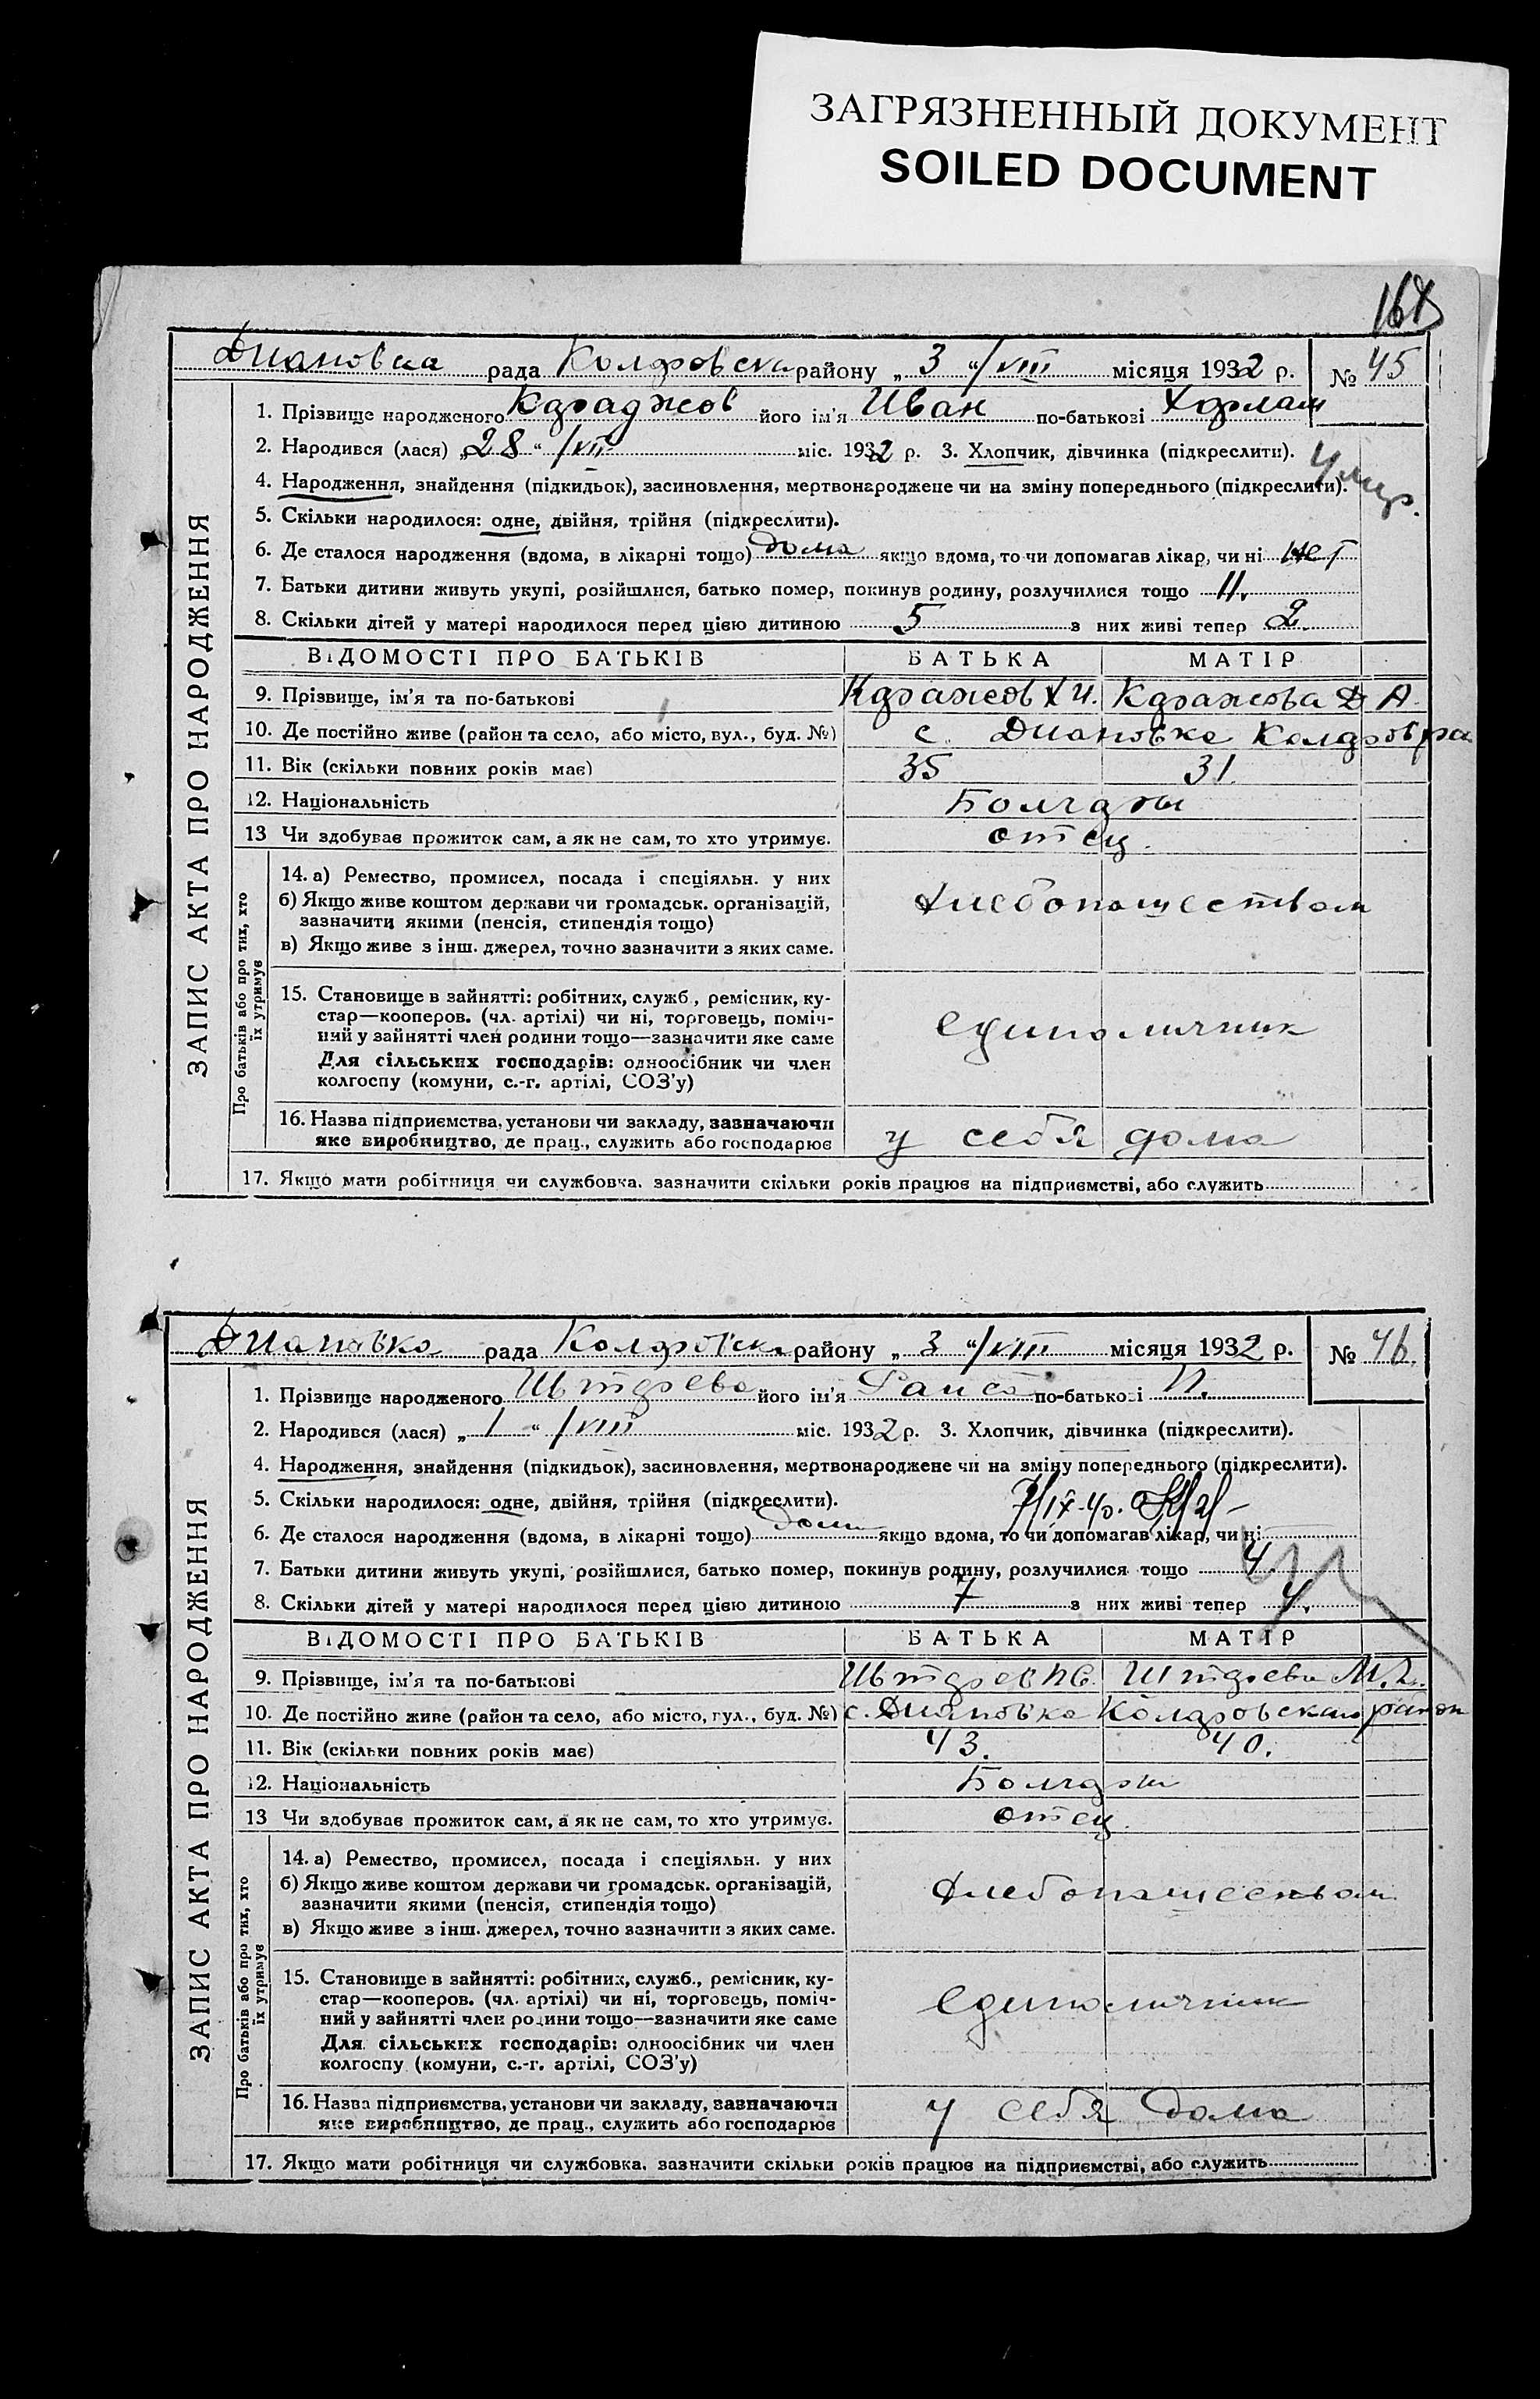 ЗАГРЯЗНЕННЫЙ ДОКУМЕНТ
SOILED DOCUMENT
Диановка рада Колоровски району „ 3 “ /VIII місяця 1932 р. № 45
1. Прізвище народженого Караджов його ім'я Иван по-батькові Харлам
2. Народився (лася) „28“ /VII міс. 1932 р. 3. Хлопчик, дівчинка (підкреслити).
4. Народження, знайдення (підкидьок), засиновлення, мертвонароджене чи на зміну попереднього (підкреслити).
5. Скільки народилося: одне, двійня, трійня (підкреслити).
6. Де сталося народження (вдома, в лікарні тощо) дома якщо вдома, то чи допомагав лікар, чи ні нет
7. Батьки дитини живуть укупі, розійшлися, батько помер, покинув родину, розлучилися тощо
8. Скільки дітей у матері народилося перед цією дитиною 5 з них живі тепер 2.
ВІДОМОСТІ ПРО БАТЬКІВ БАТЬКА МАТІР
9. Прізвище, ім'я та по-батькові Х И. Д А.
10. Де постійно живе (район та село, або місто, вул., буд. №) с. Диановка
11. Вік (скільки повних років має) 35 31
12. Національність Болгары
13 Чи здобуває прожиток сам, а як не сам, то хто утримує. отец.
Про батьків або про тих, хто їх утримує
14. а) Ремество, промисел, посада і спеціяльн. у них
б) Якщо живе коштом держави чи громадськ. організацій,
зазначити якими (пенсія, стипендія тощо)
хлебопашеством
в) Якщо живе з інш. джерел, точно зазначити з яких саме.
15. Становище в зайнятті: робітник, служб., ремісник, ку-
стар—кооперов. (чл. артілі) чи ні, торговець, поміч-
ний у зайнятті член родини тощо—зазначити яке саме
единоличник
Для сільських господарів: одноосібник чи член
колгоспу (комуни, с.-г. артілі, СОЗ'у)
16. Назва підприємства, установи чи закладу, зазначаючи
яке виробництво, де прац., служить або господарює
у себя дома
17. Якщо мати робітниця чи службовка. зазначити скільки років працює на підприємстві, або служить
ЗАПИС АКТА ПРО НАРОДЖЕННЯ
Диановка рада району „ 3 “ /VIII місяця 1932 р. № 46.
1. Прізвище народженого його ім'я Раиса по-батькові П.
2. Народився (лася) „ 1 “ /VIII міс. 1932 р. 3. Хлопчик, дівчинка (підкреслити).
4. Народження, знайдення (підкидьок), засиновлення, мертвонароджене чи на зміну попереднього (підкреслити).
5. Скільки народилося: одне, двійня, трійня (підкреслити).
6. Де сталося народження (вдома, в лікарні тощо) дома якщо вдома, то чи допомагав лікар, чи ні
7. Батьки дитини живуть укупі, розійшлися, батько помер, покинув родину, розлучилися тощо
8. Скільки дітей у матері народилося перед цією дитиною 7 з них живі тепер 4.
ВІДОМОСТІ ПРО БАТЬКІВ БАТЬКА МАТІР
9. Прізвище, ім'я та по-батькові
10. Де постійно живе (район та село, або місто, вул., буд. №) с. Диановка район
11. Вік (скільки повних років має) 43. 40.
12. Національність Болгары
13 Чи здобуває прожиток сам, а як не сам, то хто утримує. отец.
Про батьків або про тих, хто їх утримує
14. а) Ремество, промисел, посада і спеціяльн. у них
б) Якщо живе коштом держави чи громадськ. організацій,
зазначити якими (пенсія, стипендія тощо)
хлебопашеством
в) Якщо живе з інш. джерел, точно зазначити з яких саме.
15. Становище в зайнятті: робітник, служб., ремісник, ку-
стар—кооперов. (чл. артілі) чи ні, торговець, поміч-
ний у зайнятті член родини тощо—зазначити яке саме
единоличник
Для сільських господарів: одноосібник чи член
колгоспу (комуни, с.-г. артілі, СОЗ'у)
16. Назва підприємства, установи чи закладу, зазначаючи
яке виробництво, де прац., служить або господарює
у себя дома
17. Якщо мати робітниця чи службовка. зазначити скільки років працює на підприємстві, або служить
ЗАПИС АКТА ПРО НАРОДЖЕННЯ